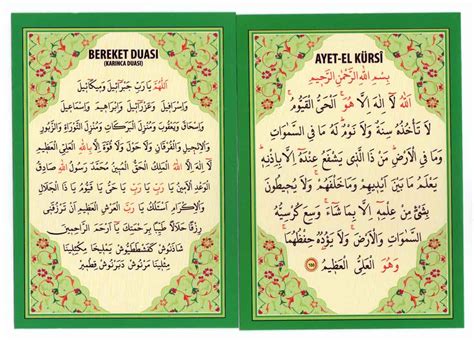 BEREKET DUASI
(KARINCA DUASI)
اَللّٰهُمَّ يَا رَبِّ جَبْرَائِيلَ وَمِيكَائِيلَ
وَاِسْرَافِيلَ وَعَزْرَائِيلَ وَاِبْرَاهِيمَ وَاِسْمَاعِيلَ
وَاِسْحَاقَ وَيَعْقُوبَ وَمُنْزِلَ الْبَرَكَاتِ وَمُنْزِلَ التَّوْرَاةِ وَالزَّبُورِ
وَالْاِنْجِيلِ وَالْفُرْقَانِ وَلَا حَوْلَ وَلَا قُوَّةَ اِلَّا بِاللّٰهِ الْعَلِيِّ الْعَظِيمِ
لَا اِلٰهَ اِلَّا اللّٰهُ الْمَلِكُ الْحَقُّ الْمُبِينُ مُحَمَّدٌ رَسُولُ اللّٰهِ صَادِقُ
الْوَعْدِ الْاَمِينُ يَا رَبِّ يَا رَبِّ يَا حَيُّ يَا قَيُّومُ يَا ذَا الْجَلَالِ
وَالْاِكْرَامِ اَسْئَلُكَ يَا رَبَّ الْعَرْشِ الْعَظِيمِ اَنْ تَرْزُقَنِي
رِزْقًا حَلَالًا طَيِّبًا بِرَحْمَتِكَ يَا اَرْحَمَ الرَّاحِمِينَ
شَاذَنُوشْ كَفَشْطَطَيُّوشْ يَمْلِيخَا مَكْثَلِينَا
مِثْلِينَا مَرْنُوشْ دَبَرْنُوشْ قِطْمِيرْ
AYET-EL KÜRSÎ
بِسْمِ اللّٰهِ الرَّحْمٰنِ الرَّحِيمِ
اَللّٰهُ لَا اِلٰهَ اِلَّا هُوَ اَلْحَيُّ الْقَيُّومُ
لَا تَأْخُذُهُ سِنَةٌ وَلَا نَوْمٌ لَهُ مَا فِي السَّمٰوَاتِ
وَمَا فِي الْاَرْضِ مَنْ ذَا الَّذِي يَشْفَعُ عِنْدَهُ اِلَّا بِاِذْنِهِ
يَعْلَمُ مَا بَيْنَ اَيْدِيهِمْ وَمَا خَلْفَهُمْ وَلَا يُحِيطُونَ
بِشَيْءٍ مِنْ عِلْمِهِ اِلَّا بِمَا شَاءَ وَسِعَ كُرْسِيُّهُ
السَّمٰوَاتِ وَالْاَرْضَ وَلَا يَؤُدُهُ حِفْظُهُمَا
وَهُوَ الْعَلِيُّ الْعَظِيمُ